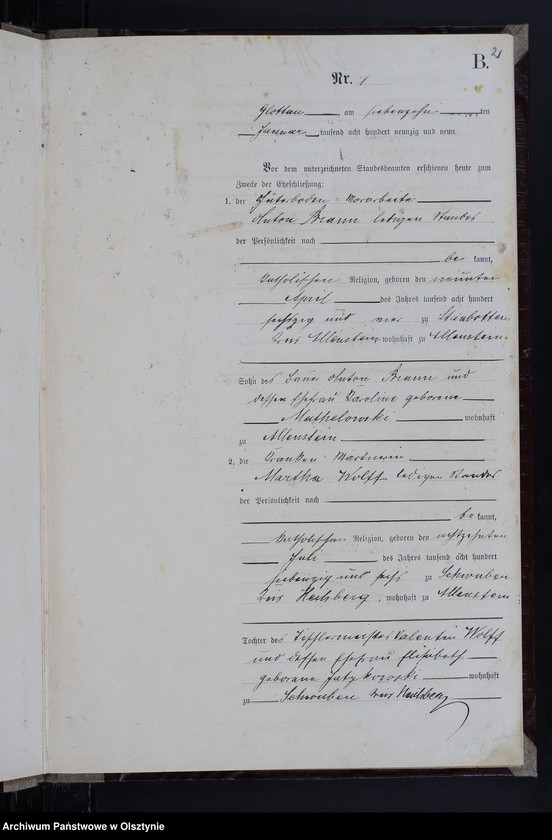 B.
21
Nr. 1
Glottau am siebenzehn ten
Januar tausend acht hundert neunzig und neun.
Vor dem unterzeichneten Standesbeamten erschienen heute zum
Zwecke der Eheschließung:
1. der Güterboden-
Anton Braun ledigen Standes
der Persönlichkeit nach
be kannt,
katholischen Religion, geboren den neunten
April des Jahres tausend acht hundert
sechszig und vier zu
Kreis Allenstein wohnhaft zu Allenstein
Sohn des Bauer Anton Braun und
dessen Ehefrau Karoline geborene
wohnhaft
zu Allenstein
2. die Kranken-Wärterin
Martha Wolff ledigen Standes
der Persönlichkeit nach
be kannt,
katholischen Religion, geboren den achtzehnten
Juli des Jahres tausend acht hundert
siebenzig und sechs zu Schwuben
Kreis Heilsberg, wohnhaft zu Allenstein
Tochter des Tischlermeister Valentin Wolff
und dessen Ehefrau Elisabeth
geborene wohnhaft
zu Schwuben Kreis Heilsberg
Archiwum Państwowe w Olsztynie